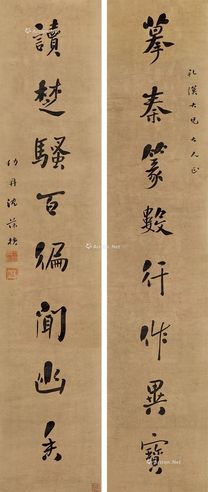 礼漢大兄大人正
摹秦篆數行作異寶
讀楚騷百徧聞幽香
仲丹沈葆楨